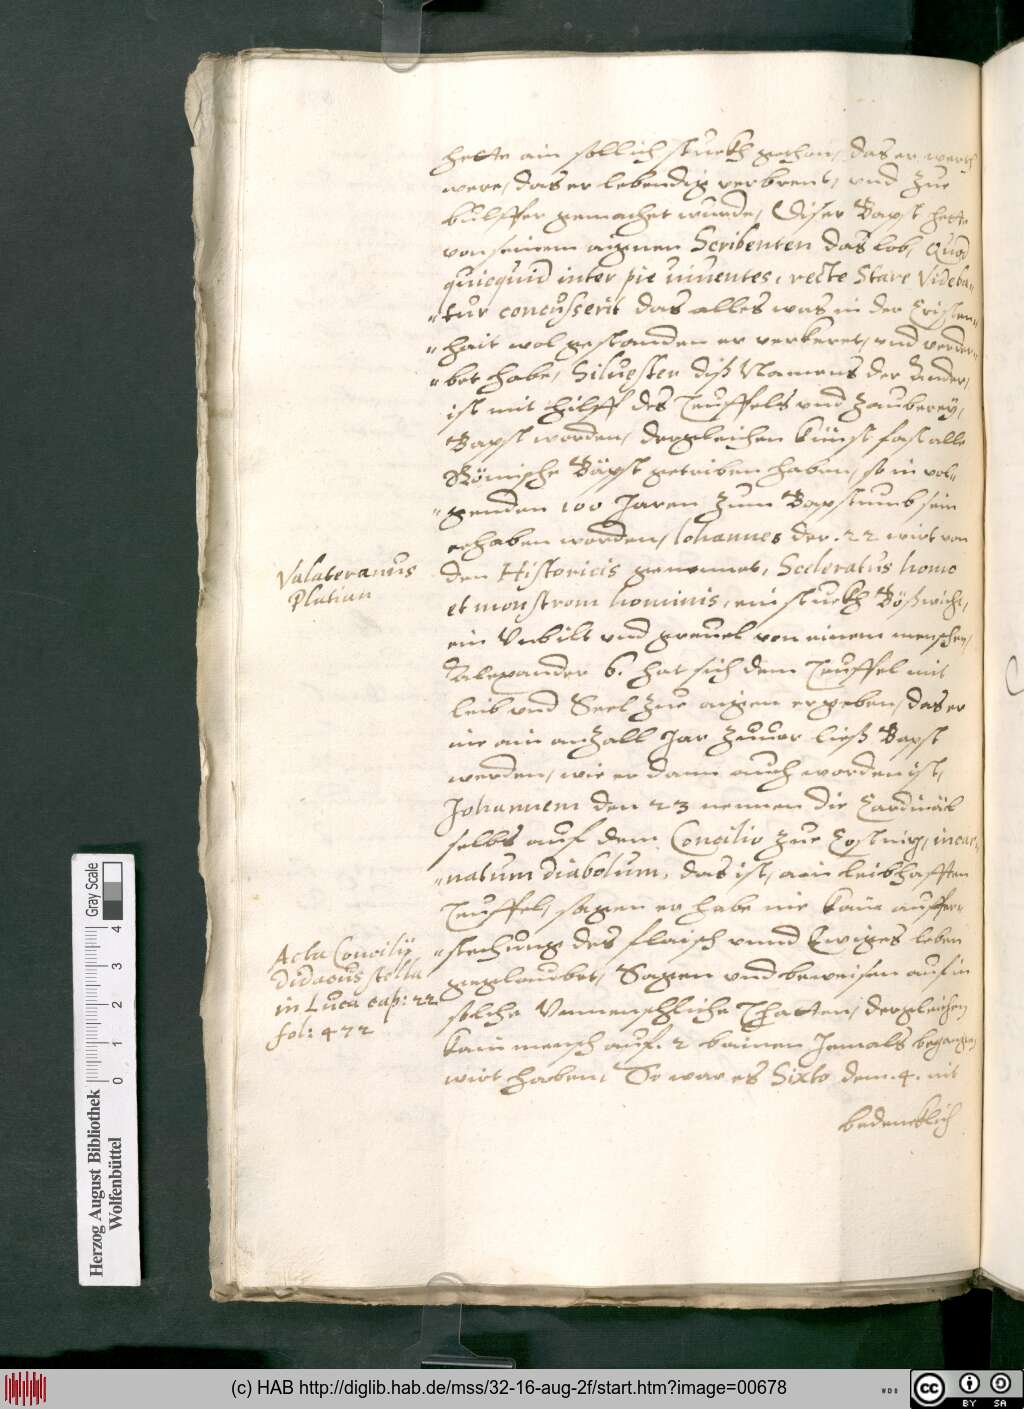 hette ain sollich stuckh gethon, das er werth
were, das er lebendig verbrent, vnd zue
bulffer gemachet wurde, Diser Bapst hette
von seinem aignen Scribenten das lob, Quod
quicquid inter pie viuentes, recte Stare Videba-
-tur concusserit das alles was in der Cristen-
-hait wol gestanden er verkeret, vnd verder-
-bet habe, Siluester diß Namens der Ander,
ist mit hilff des Teuffels vnd Zauberey,
Bapst worden, dergleichen künst fast alle
Römische Bäpst getriben haben, so in vol-
-genden 100 Jaren zum Bapstumb sein
erhaben worden, Iohannes der .22 wirt von
Valateranus
Platian
den Historicis genennet, Sceleratus homo
et monstrom hominis, ein stuckh Bößwicht,
ein Vnbilt vnd greuel von einem menschen,
Alexander 6. hat sich dem Teuffel mit
leib vnd Seel zue aigen ergeben, das er
nie ain anzall Jar zuuor ließ Bapst
werden, wie er dann auch worden ist,
Johannem den 23 nennen die Cardinäl
selbs auf dem Concilio zue Costnig, incar-
-natum diabolum, das ist, ain leibhafften
Teuffel, sagen er habe nie kain auffer-
Acta Concilij
Didacus stella
in Luca cap: 22
fol: 472
-stehung des flaisch vnnd Ewiges leben
geglaubet, Sagen vnd beweisen auf in
solche Vnmenschliche Thatten, dergleichen
kain mensch auf .2 bainen Jemals begangen
wirt haben, So war es Sixto dem .4. nit
bedencklich
Gray Scale
0 1 2 3 4
Herzog August Bibliothek
Wolfenbüttel
(c) HAB http://diglib.hab.de/mss/32-16-aug-2f/start.htm?image=00678
WDB
cc BY SA